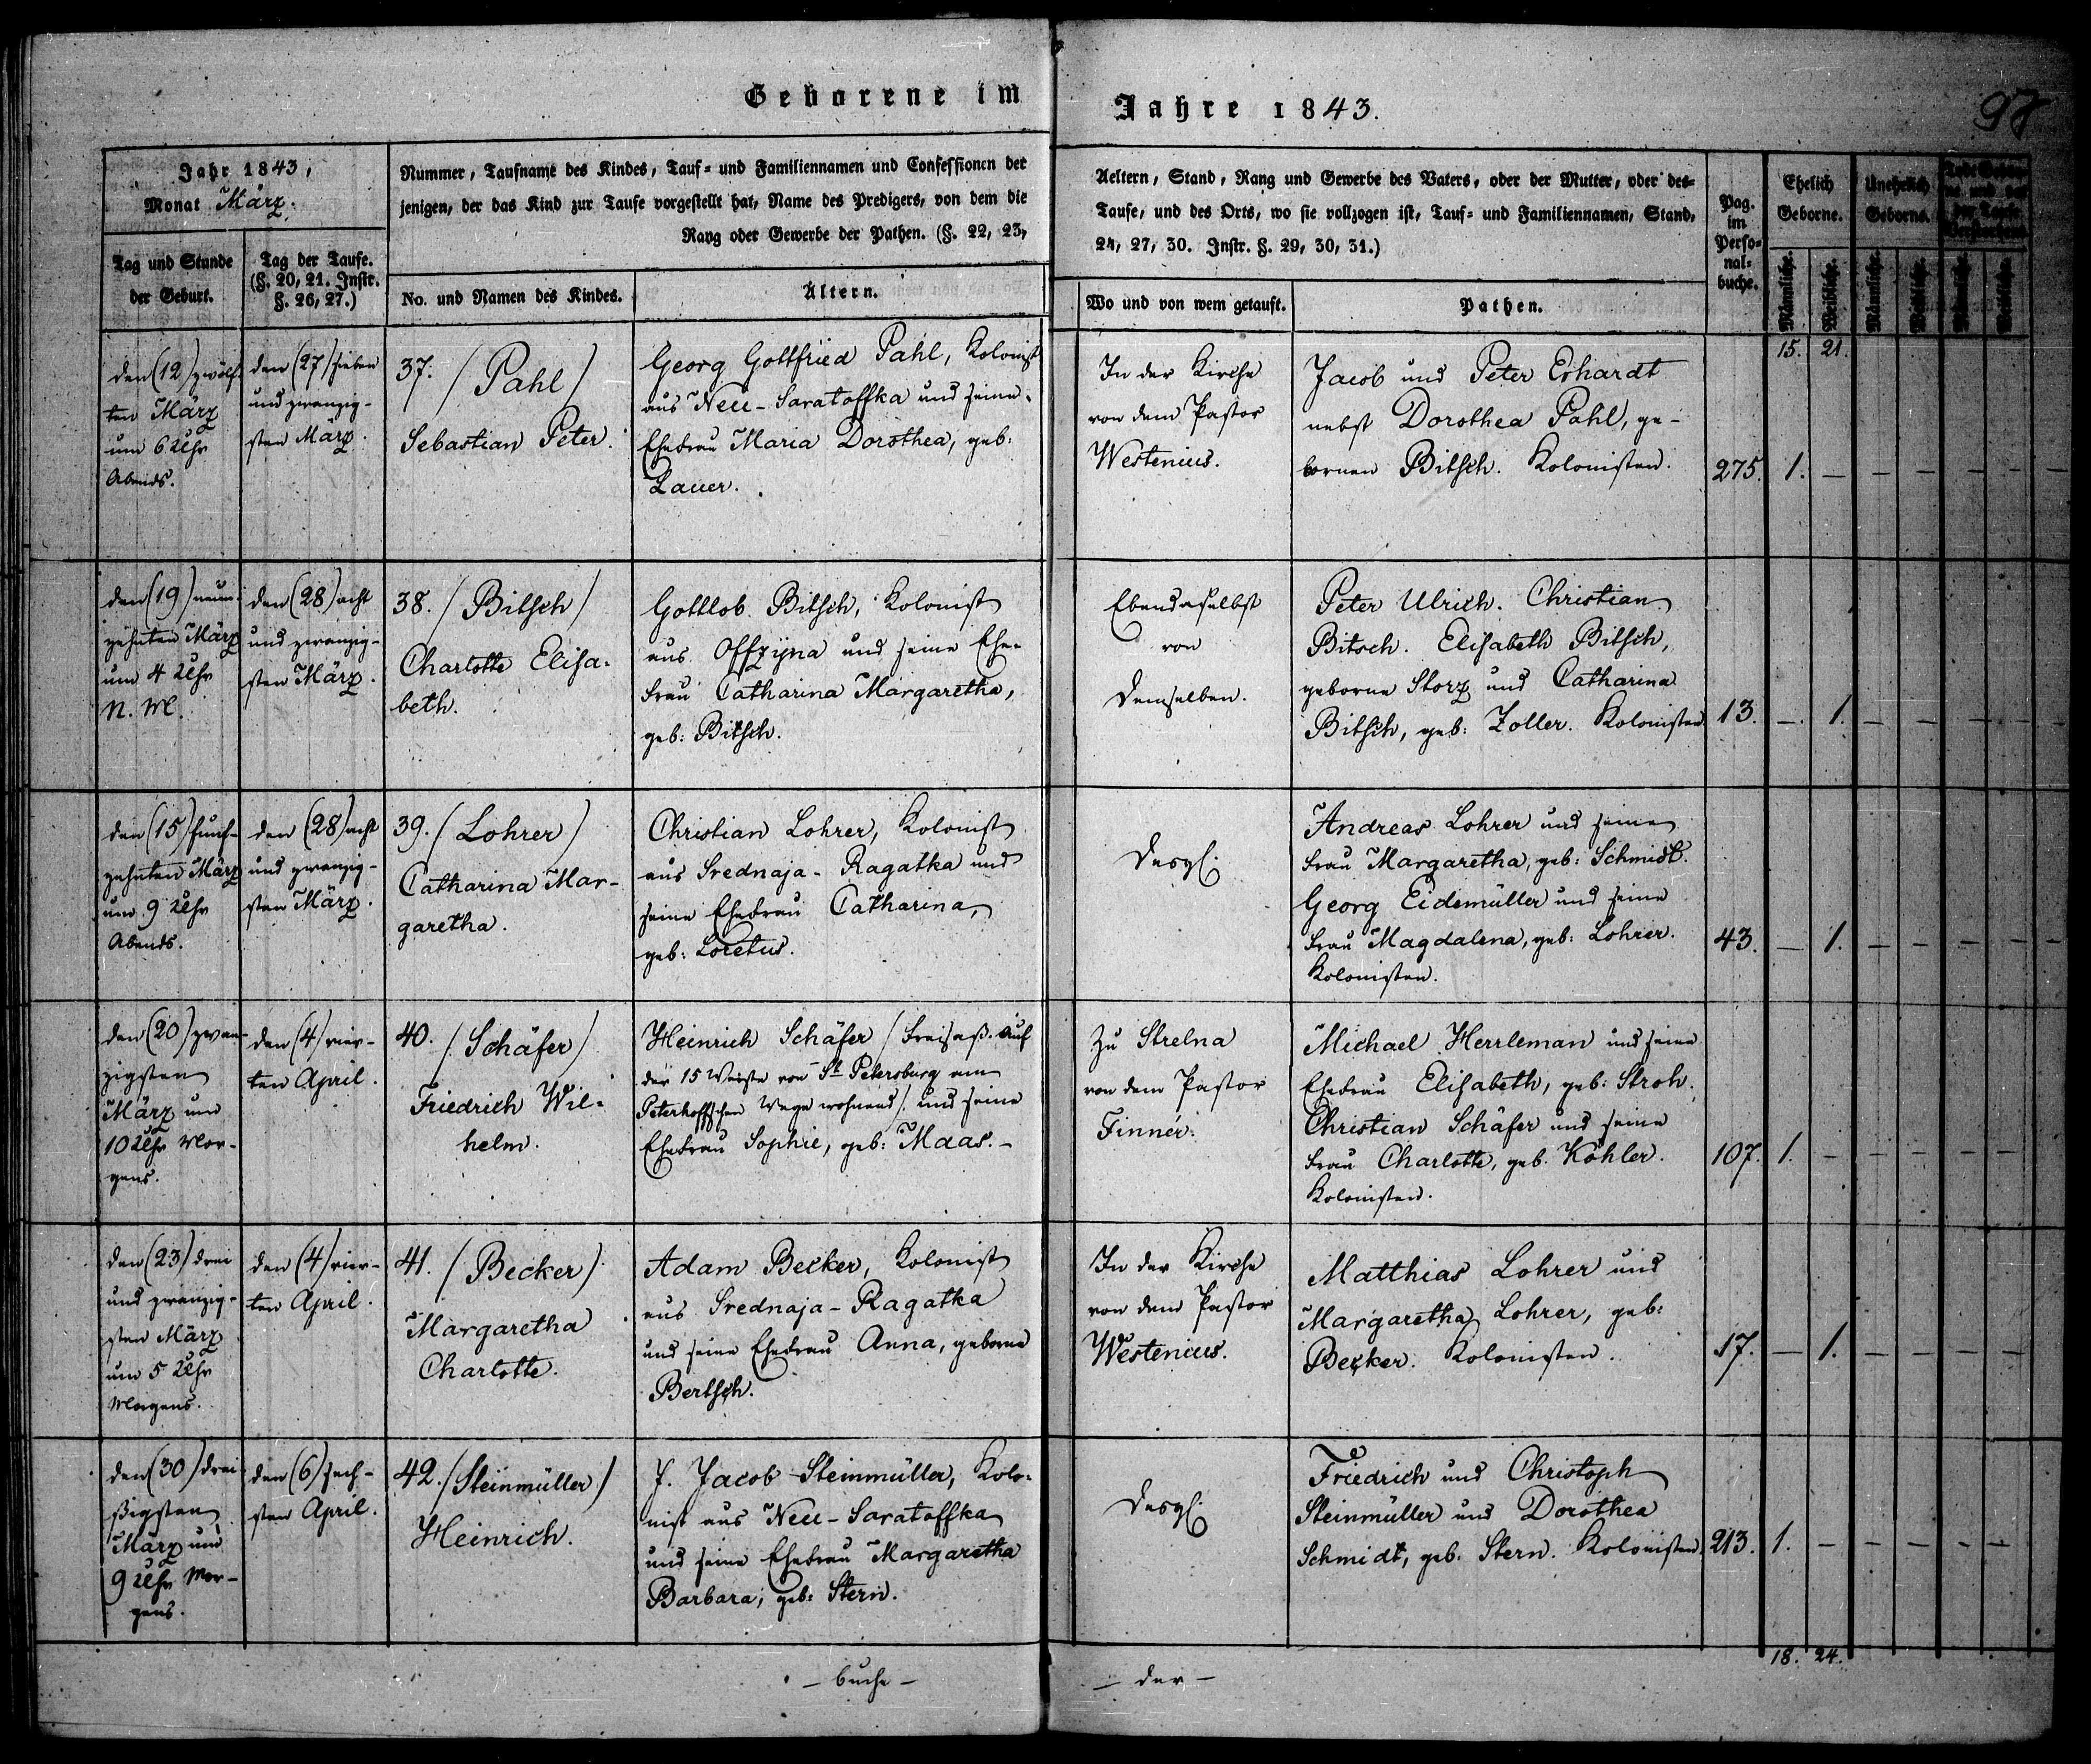 Geborene im Jahre 1843.
97
Jahr 1843,
Monat März.
Tag und Stunde
der Geburt.
Tag der Taufe.
(§. 20, 21. Instr.
§. 26, 27.)
Nummer, Taufname des Kindes, Tauf= und Familiennamen und Confessionen der
jenigen, der das Kind zur Taufe vorgestellt hat, Name des Predigers, von dem die
Rang oder Gewerbe der Pathen. (§. 22, 23,
No. und Namen des Kindes.
Ältern.
Aeltern, Stand, Rang und Gewerbe des Vaters, oder der Mutter, oder des=
Taufe, und des Orts, wo sie vollzogen ist, Tauf= und Familiennamen, Stand,
24, 27, 30. Instr. §. 29, 30, 31.)
Wo und von wem getauft.
Pathen.
Pag.
im
Perso=
nal=
buche.
Ehelich
Geborne.
Unehelich
Geborne.
Männliche.
Weibliche.
Männliche.
Weibliche.
Männliche.
Weibliche.
15. 21.
den (12) zwölf-
ten März
um 6 Uhr
Abends.
den (27) sieben
und zwanzig-
sten März.
37. / Pahl /
Sebastian Peter.
Georg Gottfried Pahl, Kolonist
aus Neu-Saratoffka und seine
Ehefrau Maria Dorothea, geb:
Lauer.
In der Kirche
von dem Pastor
Westenius.
Jacob und Peter Erhardt
nebst Dorothea Pahl, ge-
bornen Bitsch. Kolonisten.
275. 1. — — — — —
den (19) neun-
zehnten März
um 4 Uhr
N. M.
den (28) acht
und zwanzig-
sten März.
38. / Bitsch /
Charlotte Elisa-
beth.
Gottlob Bitsch, Kolonist
aus Offzijna und seine Ehe-
frau Catharina Margaretha,
geb: Bitsch.
Ebendaselbst
von
demselben.
Peter Ulrich. Christian
Bitsch. Elisabeth Bitsch,
geborne Storz und Catharina
Bitsch, geb: Zoller. Kolonisten
13. — 1. — — — —
den (15) fünf-
zehnten März
um 9 Uhr
Abends.
den (28) acht
und zwanzig-
sten März.
39. / Lohrer /
Catharina Mar-
garetha.
Christian Lohrer, Kolonist
aus Srednaja-Ragatka und
seine Ehefrau Catharina,
geb: Loretus.
desgl.
Andreas Lohrer und seine
Frau Margaretha, geb: Schmidt.
Georg Eidemüller und seine
Frau Magdalena, geb: Lohrer.
Kolonisten.
43. — 1. — — — —
den (20) zwan-
zigsten
März um
10 Uhr Mor-
gens.
den (4) vier-
ten April.
40. / Schäfer /
Friedrich Wil-
helm.
Heinrich Schäfer / Freisaß. Auf
der 15 Werste von St Petersburg am
Peterhoffschen Wege wohnend / und seine
Ehefrau Sophie, geb: Maas. -
Zu Strelna
von dem Pastor
Finner.
Michael Herrleman und seine
Ehefrau Elisabeth, geb: Stroh.
Christian Schäfer und seine
Frau Charlotte, geb. Köhler.
Kolonisten.
107. 1. — — — — —
den (23) drei
und zwanzig-
sten März
um 5 Uhr
Morgens.
den (4) vier-
ten April.
41. / Becker /
Margaretha
Charlotte.
Adam Becker, Kolonist
aus Srednaja-Ragatka
und seine Ehefrau Anna, geborne
Bertsch.
In der Kirche
von dem Pastor
Westenius.
Matthias Lohrer und
Margaretha Lohrer, geb:
Becker. Kolonisten.
17. — 1. — — — —
den (30) drei-
ßigsten
März um
9 Uhr Mor-
gens.
den (6) sech-
sten April.
42. / Steinmüller /
Heinrich.
J. Jacob Steinmüller, Kolo-
nist aus Neu-Saratoffka
und seine Ehefrau Margaretha
Barbara, geb: Stern.
desgl.
Friedrich und Christoph
Steinmüller und Dorothea
Schmidt, geb. Stern. Kolonisten.
213. 1. — — — — —
18. 24.
- buche -
- der -